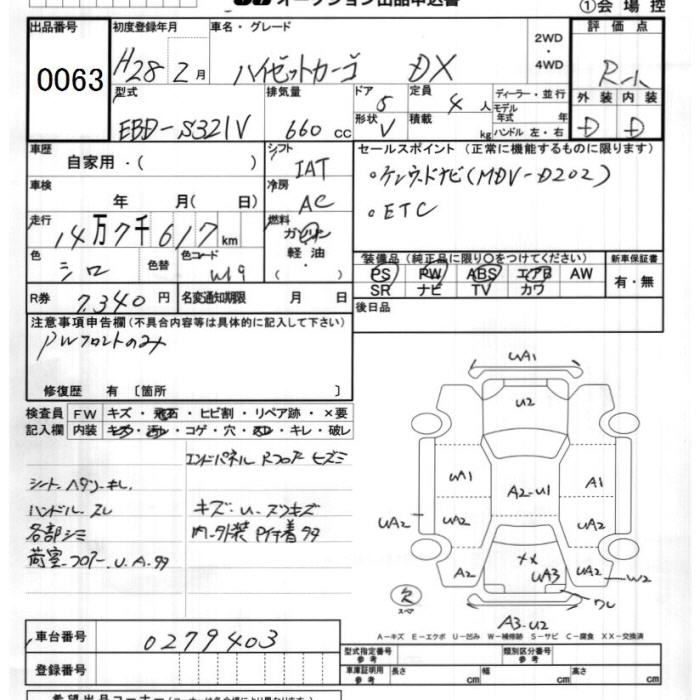 オークション出品申込書
①会場控
出品番号 初度登録年月 車名・グレード 2WD・4WD 評価点
0063 H28 2月 ハイゼットカーゴ DX R-小
型式 排気量 ドア 定員 ディーラー・並行 外装 内装
EBD-S321V 660cc 5 4人 モデル年式 年 D D
形状 積載 kg ハンドル 左・右
V
車歴 シフト セールスポイント (正常に機能するものに限ります)
自家用・( ) IAT
。ケンウッドナビ(MDV-D202)
車検 冷房
年 月( 日) AC
。ETC
走行 燃料
14万7千617km ガソリン
軽油
・
( )
色 色替 色コード
シロ W19
装備品 (純正品に限り○をつけてください) 新車保証書
PS PW ABS エアB AW 有・無
SR ナビ TV カワ
R券 7,340円 名変通知期限 月 日
後日品
注意事項申告欄 (不具合内容等は具体的に記入して下さい)
PWフロントのみ
修復歴 有 〔箇所 〕
検査員 FW キズ・飛石・ヒビ割・リペア跡・×要
記入欄 内装 キズ・汚レ・コゲ・穴・スレ・キレ・破レ
エンドパネル Rフロアー ヒズミ
シート.ヘタリ・キレ.
ハンドル.スレ キズ.U.スリキズ
各部シミ 内外装 P付着タタ
荷室.フロアー.U.A.タタ
UA1
U2
UA1 A1
A2-U1
UA2 UA2 UA2 UA2
A2 XX UA3 UA2 W2
ワレ
欠
スペア
A3-U2
A－キズ E－エクボ U－凹み W－補修跡 S－サビ C－腐食 XX－交換済
車台番号 0279403
登録番号
型式指定番号 参考 類別区分番号 参考
車庫証明用 参考 長さ cm 幅 cm 高さ cm
希望出品コーナー